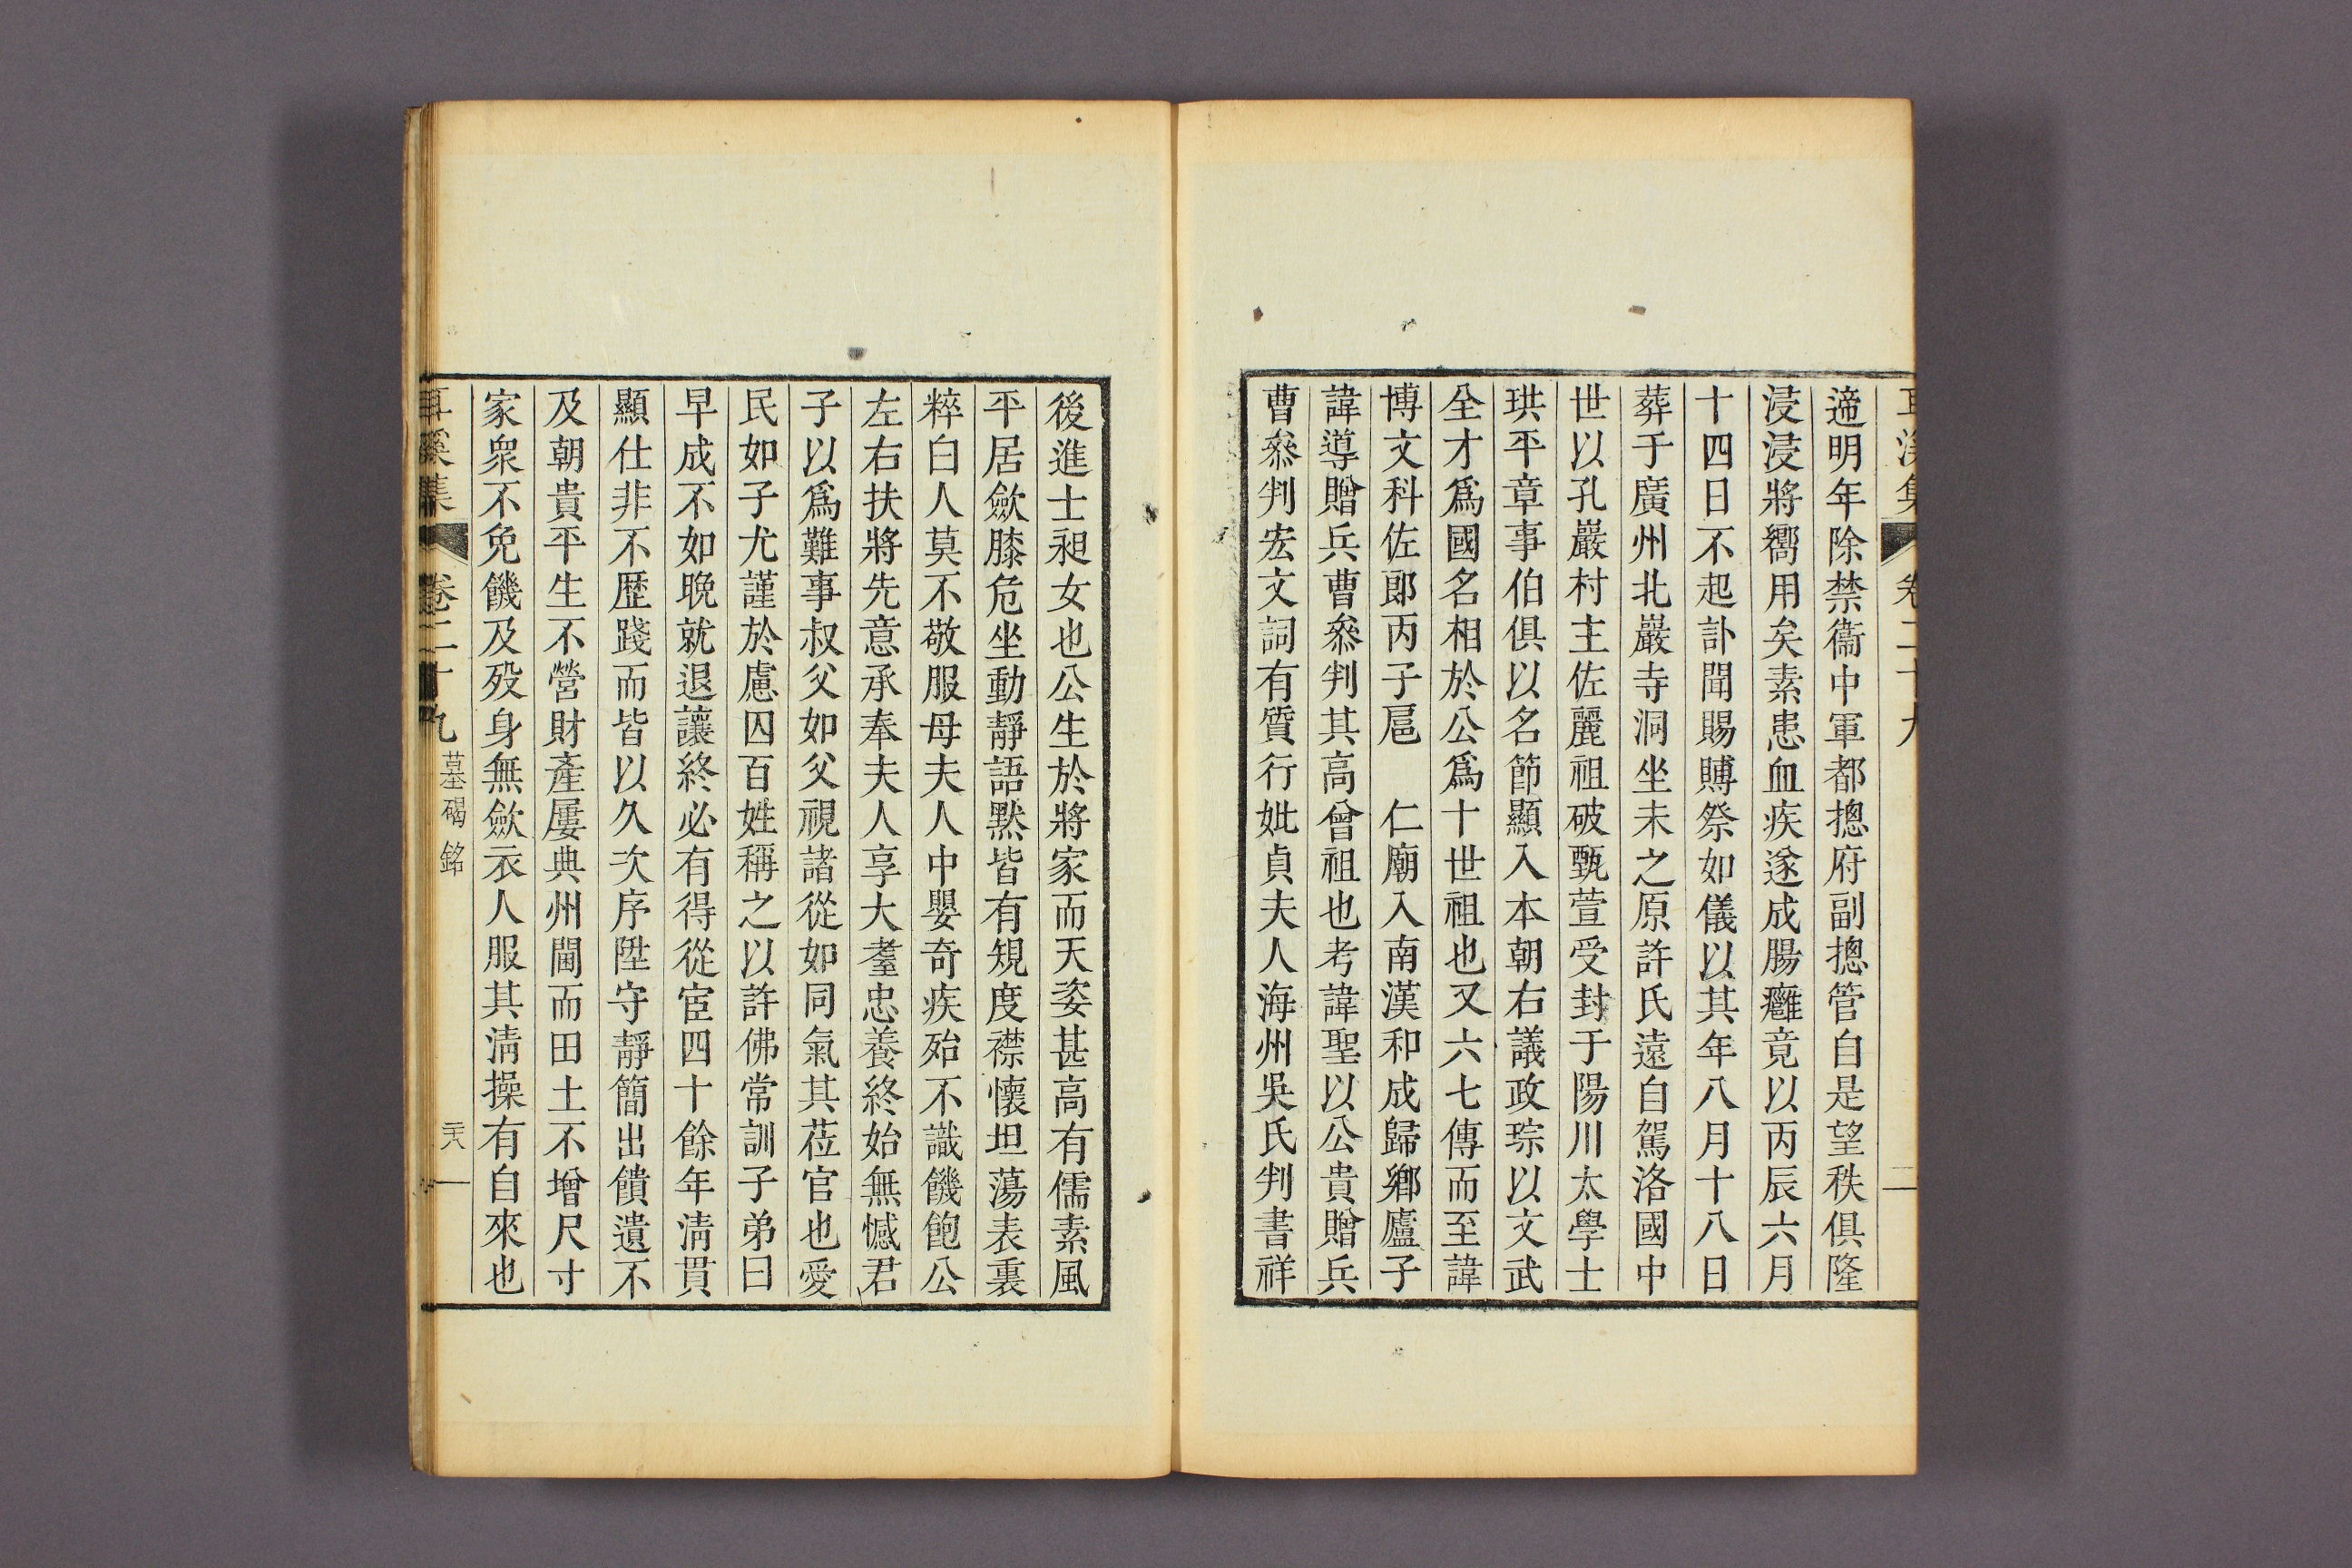 耳溪集 卷二十九
適明年除禁衞中軍都摠府副摠管自是望秩俱隆
浸浸將嚮用矣素患血疾遂成腸癰竟以丙辰六月
十四日不起訃聞賜賻祭如儀以其年八月十八日
葬于廣州北巖寺洞坐未之原許氏遠自駕洛國中
世以孔巖村主佐麗祖破甄萱受封于陽川太學士
珙平章事伯俱以名節顯入本朝右議政琮以文武
全才爲國名相於公爲十世祖也又六七傳而至諱
博文科佐郞丙子扈 仁廟入南漢和成歸鄕廬子
諱導贈兵曹叅判其高曾祖也考諱聖以公貴贈兵
曹叅判宏文詞有質行妣貞夫人海州吳氏判書祥
後進士昶女也公生於將家而天姿甚高有儒素風
平居歛膝危坐動靜語默皆有規度襟懷坦蕩表裏
粹白人莫不敬服母夫人中嬰奇疾殆不識饑飽公
左右扶將先意承奉夫人享大耋忠養終始無憾君
子以爲難事叔父如父視諸從如同氣其莅官也愛
民如子尤謹於慮囚百姓稱之以許佛常訓子弟曰
早成不如晚就退讓終必有得從宦四十餘年淸貫
顯仕非不歷踐而皆以久次序陞守靜簡出饋遺不
及朝貴平生不營財產屢典州閫而田土不增尺寸
家衆不免饑及殁身無歛衣人服其淸操有自來也
耳溪集 卷二十九 墓碣銘 二十八